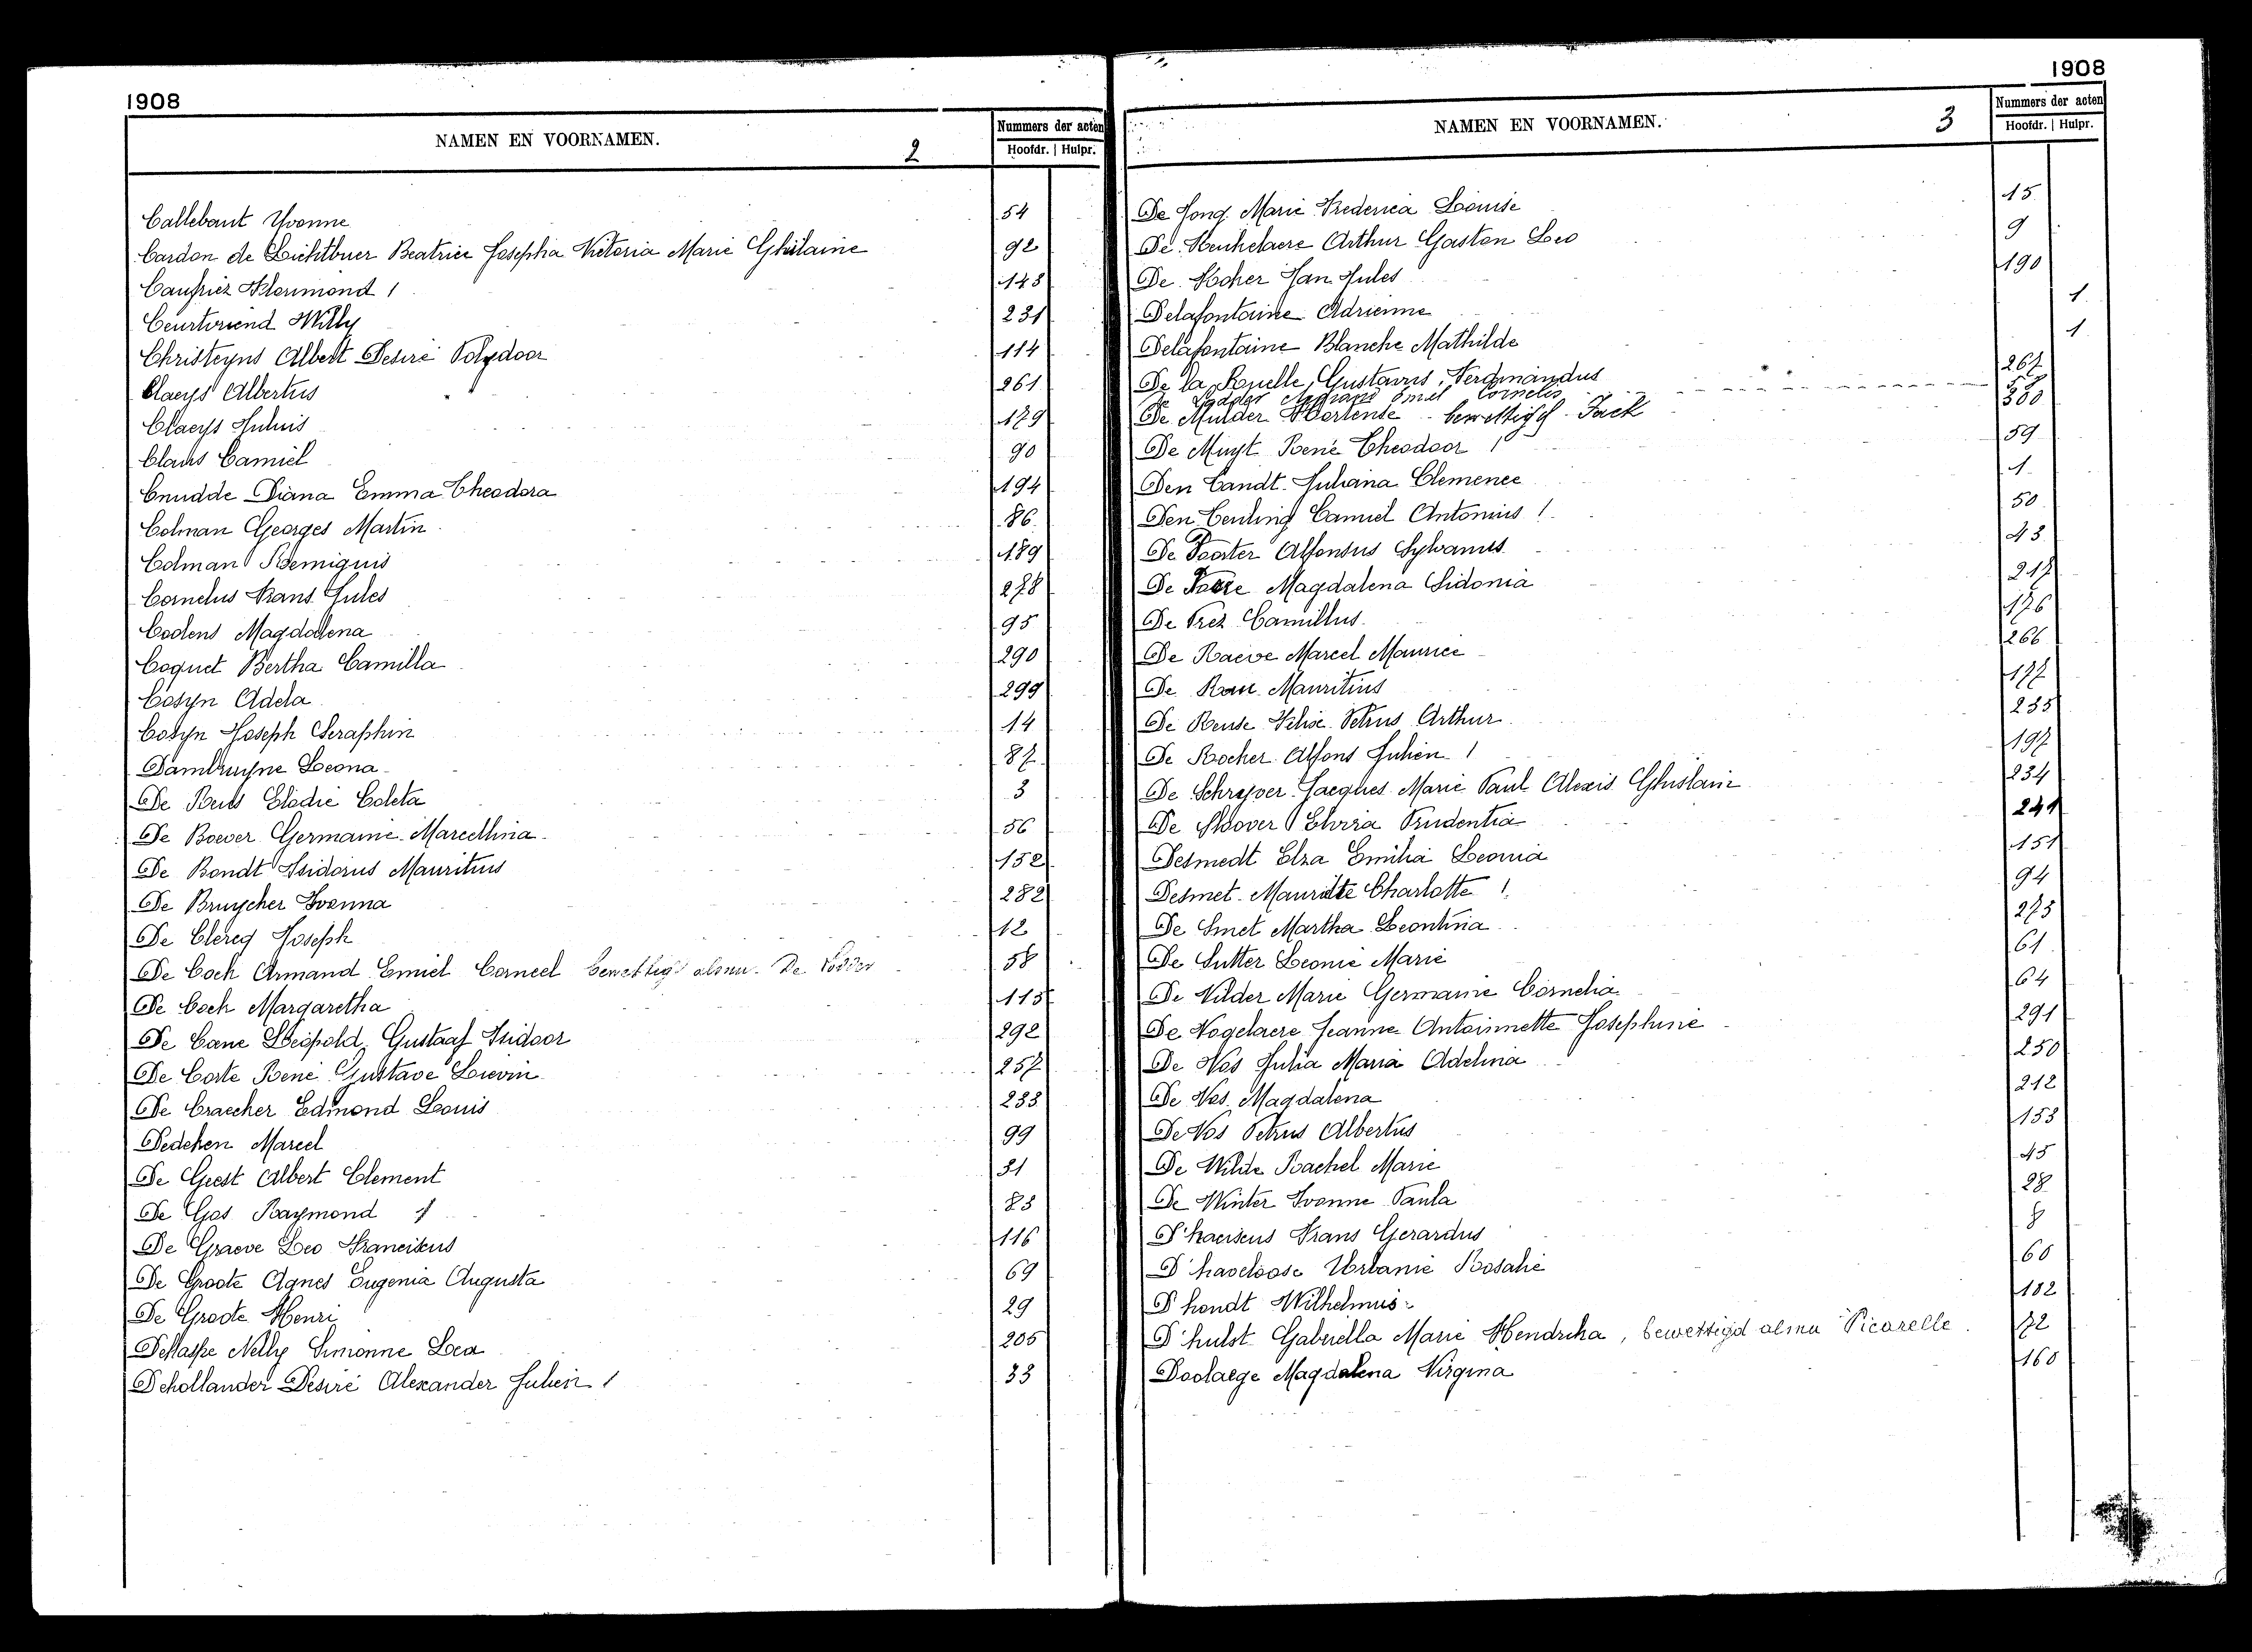 1908
NAMEN EN VOORNAMEN. 2
Nummers der acten
Hoofdr. | Hulpr.
Callebaut Yvonne 54
Cardon de Lichtbuer Beatrice Josepha Victoria Marie Ghislaine 92
Caufriez Florimond 1 143
Willy 231
Christeyns Albert Desiré Polydoor 114
Claeys Albertus 261
Claeys Julius 129
Claus Camiel 90
Cnudde Diana Emma Theodora 194
Colman Georges Martin 86
Colman Remigius 189
Cornelus Frans Jules 278
Coolens Magdalena 95
Coquet Bertha Camilla 290
Cosyn Adela 299
Cosyn Joseph Seraphin 14
Dambruyne Leona 87
De Buts Elodie Coleta 3
De Boever Germaine Marcellina 56
De Bondt Isidorus Mauritius 152
De Bruycker Ivonna 282
De Clercq Joseph 12
De Cock Armand Emiel Corneel bewettigd alsnu De Vodder 58
De Cock Margaretha 115
De Cane Leopold Gustaaf Isidoor 292
De Corte René Gustave Lievin 257
De Craecker Edmond Louis 233
Dedeken Marcel 99
De Geest Albert Clement 31
De Gos Raymond 1 83
De Graeve Leo Franciscus 116
De Groote Agnes Eugenia Augusta 69
De Groote Henri 29
Dehaspe Nelly Simonne Lea 205
Dehollander Desiré Alexander Julien 1 33
1908
NAMEN EN VOORNAMEN. 3
Nummers der acten
Hoofdr. | Hulpr.
De Jong Marie Frederica Louise 15
De Keukelaere Arthur Gaston Leo 9
De Kocker Jan Jules 190
Delafontaine Adrienne 1
Delafontaine Blanche Mathilde 1
De la Ruelle, Gustavus, Ferdinandus 267
De Vodder Armand Emiel Cornelis
De Mulder Hortense bewettigd Jack
De Muyt René Theodoor 1 59
Den Tandt Juliana Clemence 1
Den Teuling Camiel Antonius 1 50
De Paater Alfonsus Sylvanus 43
De Paere Magdalena Sidonia 217
De Prez Camillus 126
De Raeve Marcel Maurice 266
De Mauritius 177
De Reuse Petrus Arthur 235
De Rocker Alfons Julien 1 197
De Schryver Jacques Marie Paul Alexis Ghislain 234
De Elvira Prudentia 241
Desmedt Elza Emilia Leonia 151
Desmet Mauritte Charlotte 1 94
De Smet Martha Leontina 273
De Sutter Leonie Marie 61
De Vilder Marie Germaine Cornelia 64
De Vogelaere Jeanne Antoinnette Josephine 291
De Vos Julia Maria Adelina 250
De Vos Magdalena 212
De Vos Petrus Albertus 153
De Wilde Rachel Marie 45
De Winter Ivonne Paula 28
D'haeseus Frans Gerardus 8
D'haveloose Urbanie Rosalie 60
D'hondt Wilhelmus 182
D'hulst Gabriella Marie Hendrika, bewettigd alsnu Picarelle 72
Doolaege Magdalena Virgina 160